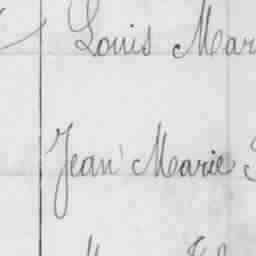 Louis Mar
Jean Marie